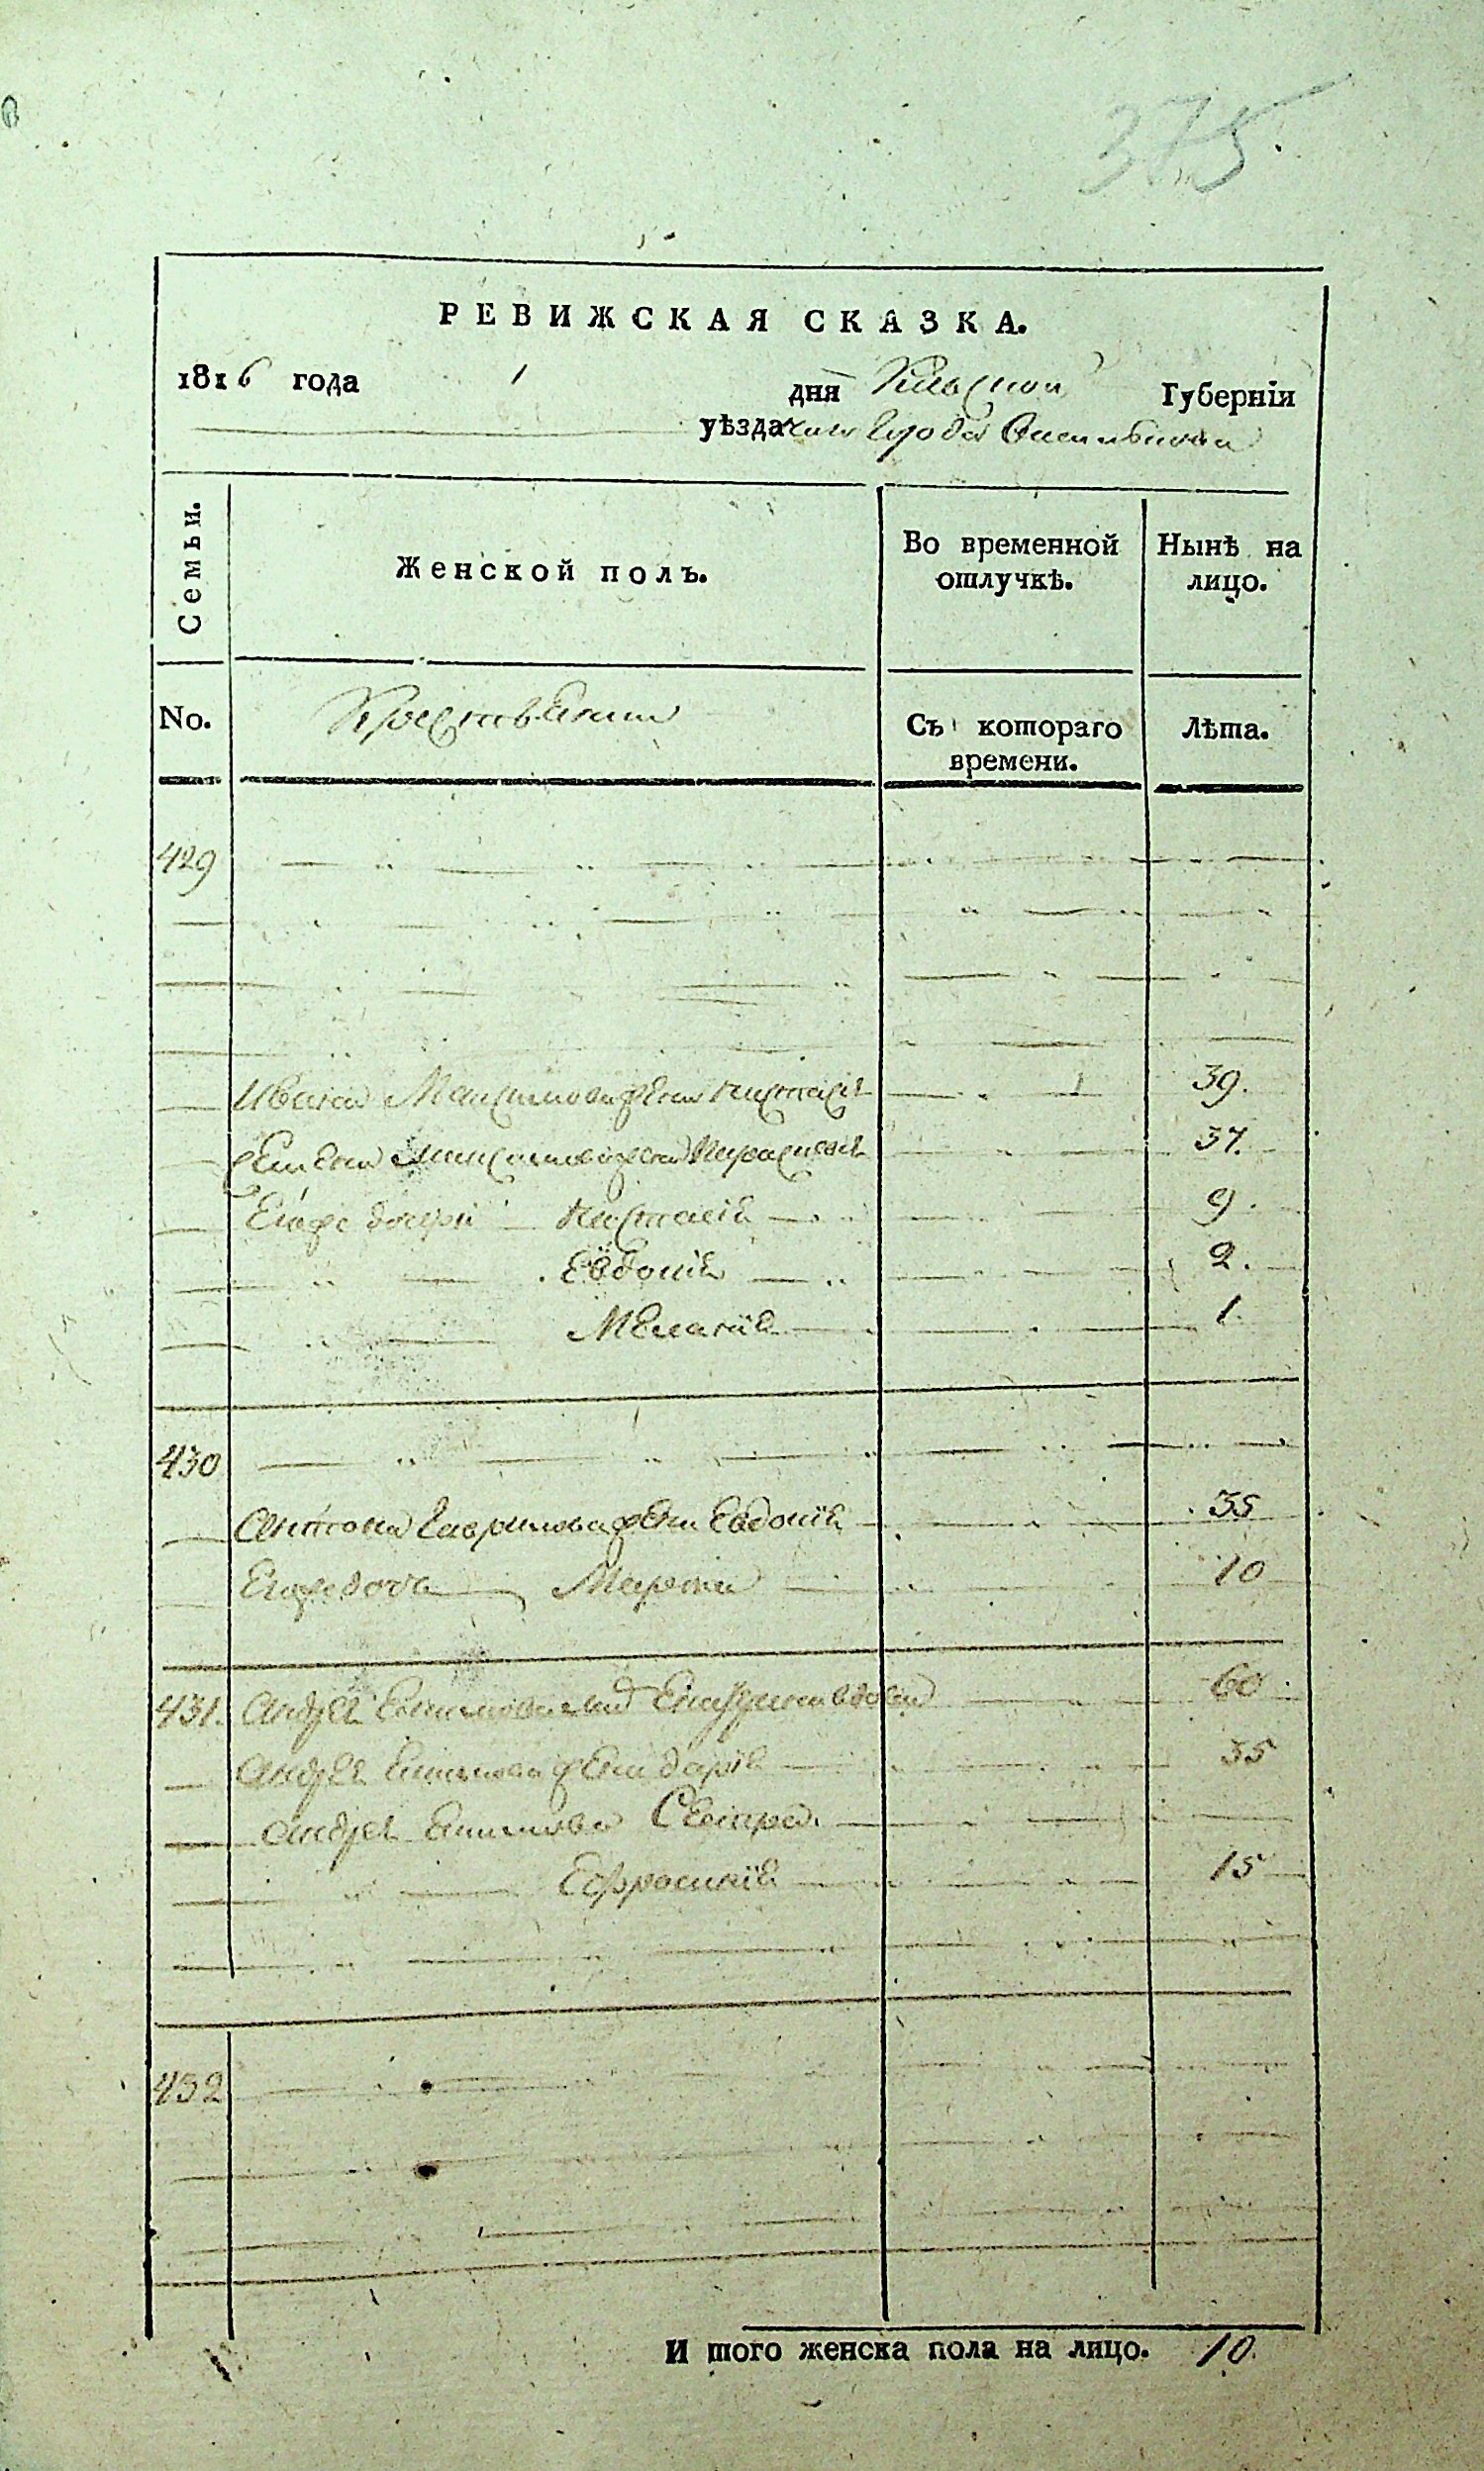 375
РЕВИЖСКАЯ СКАЗКА.
1816 года дня Киевской Губерніи
уѣзда города
Семьи.
Женской полъ.
Во временной отлучкѣ.
Нынѣ на лицо.
No.
Съ котораго времени.
Лѣта.
429
Ивана Максимова жена Настасія 39.
жена Парасковія 37.
Егоже дочери Настасія 9.
Евдокія 2.
Меланія 1.
430
Антона Гаврилова жена Евдокія 35
Егоже дочь Марфа 10
431. Андрея вдова 60
Андрея жена Дарія 35
Андрея Сестра.
Ефросинія 15
432
И того женска пола на лицо. 10.